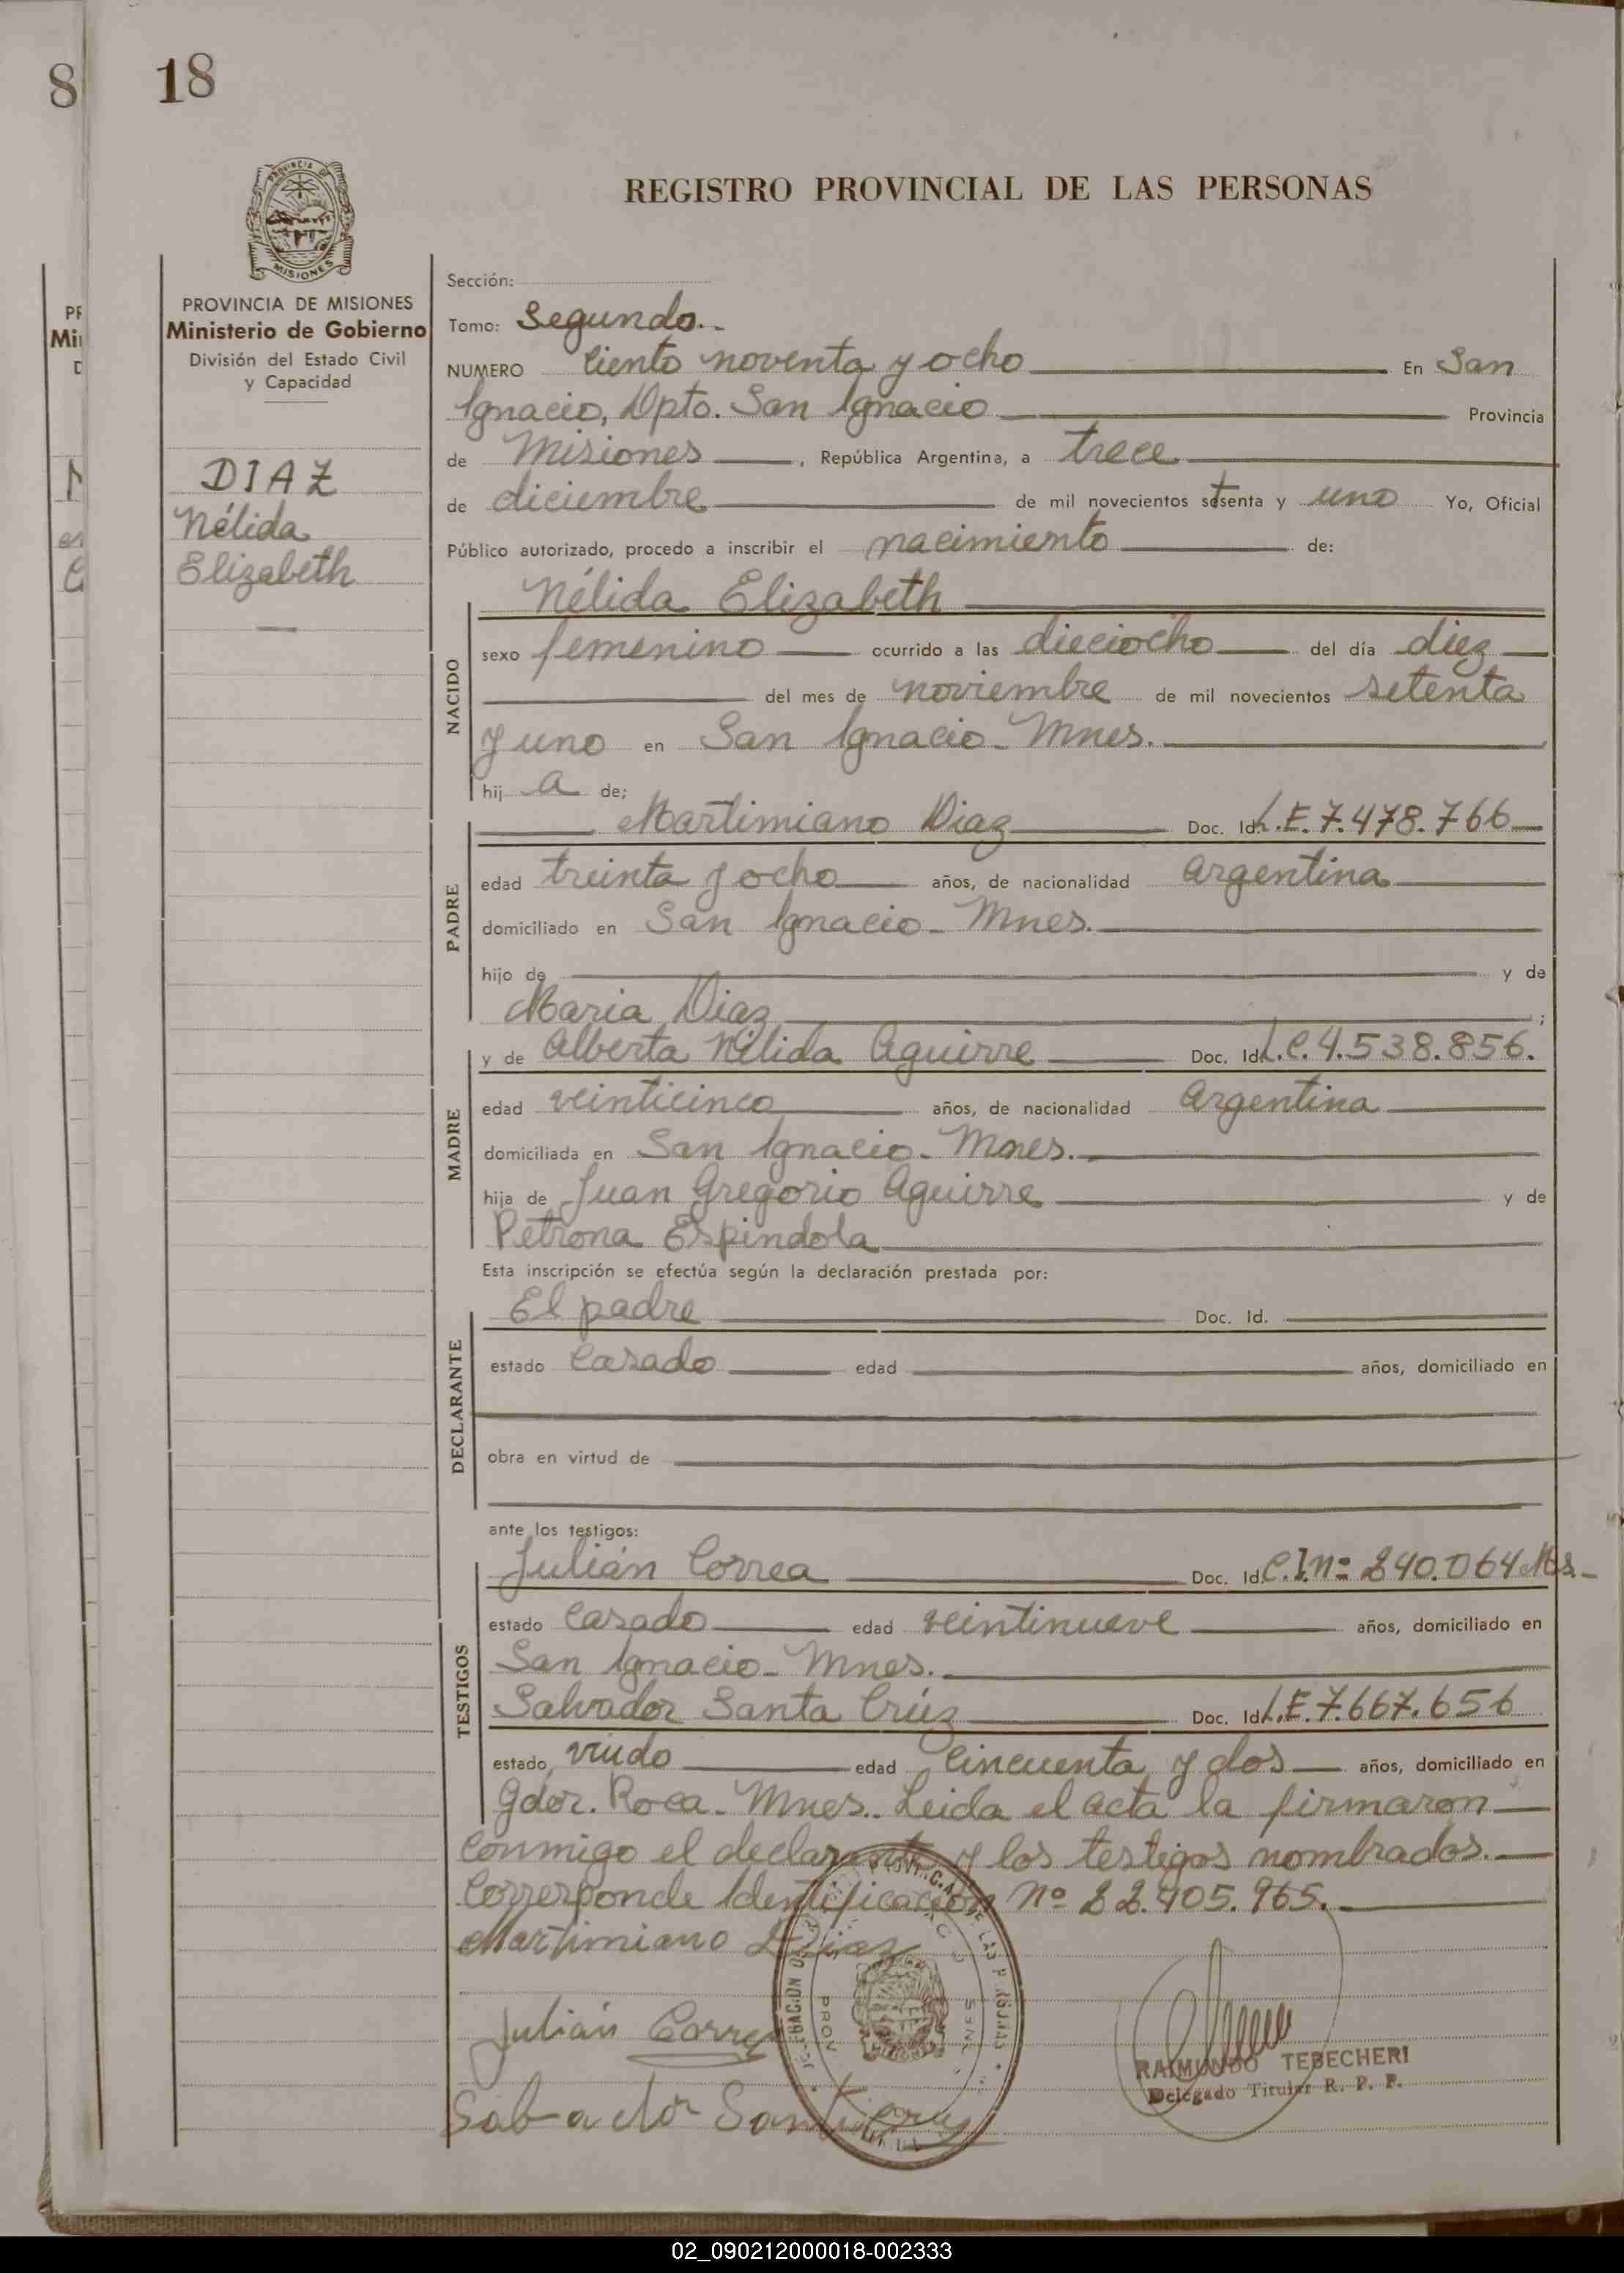 8
18
REGISTRO PROVINCIAL DE LAS PERSONAS
PROVINCIA DE
MISIONES
PROVINCIA DE MISIONES
Ministerio de Gobierno
División del Estado Civil
y Capacidad
DIAZ
Nélida
Elizabeth
Sección:
Tomo: Segundo.-
NUMERO Ciento noventa y ocho En San
Ignacio, Dpto. San Ignacio Provincia
de Misiones, República Argentina, a trece
de diciembre de mil novecientos setenta y uno Yo, Oficial
Público autorizado, procedo a inscribir el nacimiento de:
NACIDO
Nélida Elizabeth
sexo femenino ocurrido a las dieciocho del día diez
del mes de noviembre de mil novecientos setenta
y uno en San Ignacio - Mnes.
hij a de;
PADRE
Martimiano Diaz Doc. Id. L.E. 7.478.766
edad treinta y ocho años, de nacionalidad Argentina
domiciliado en San Ignacio - Mnes.
hijo de y de
Maria Diaz ;
MADRE
y de Alberta Nélida Aguirre Doc. Id. L.C. 4.538.856.
edad veinticinco años, de nacionalidad Argentina
domiciliada en San Ignacio - Mnes.
hija de Juan Gregorio Aguirre y de
Petrona Espindola
Esta inscripción se efectúa según la declaración prestada por:
DECLARANTE
El padre Doc. Id.
estado Casado edad años, domiciliado en
obra en virtud de
ante los testigos:
TESTIGOS
Julián Correa Doc. Id. C.I. Nº 240.064 Mns.-
estado Casado edad veintinueve años, domiciliado en
San Ignacio - Mnes.
Salvador Santa Crúz Doc. Id. L.E. 7.667.656
estado viudo edad Cincuenta y dos años, domiciliado en
Gdor. Roca - Mnes. Leida el acta la firmaron
conmigo el declarante y los testigos nombrados.
Corresponde Identificación Nº 22.405.965.
Martimiano Diaz
Julián Correa
RAIMUNDO TEBECHERI
Delegado Titular R. P. P.
02_090212000018-002333